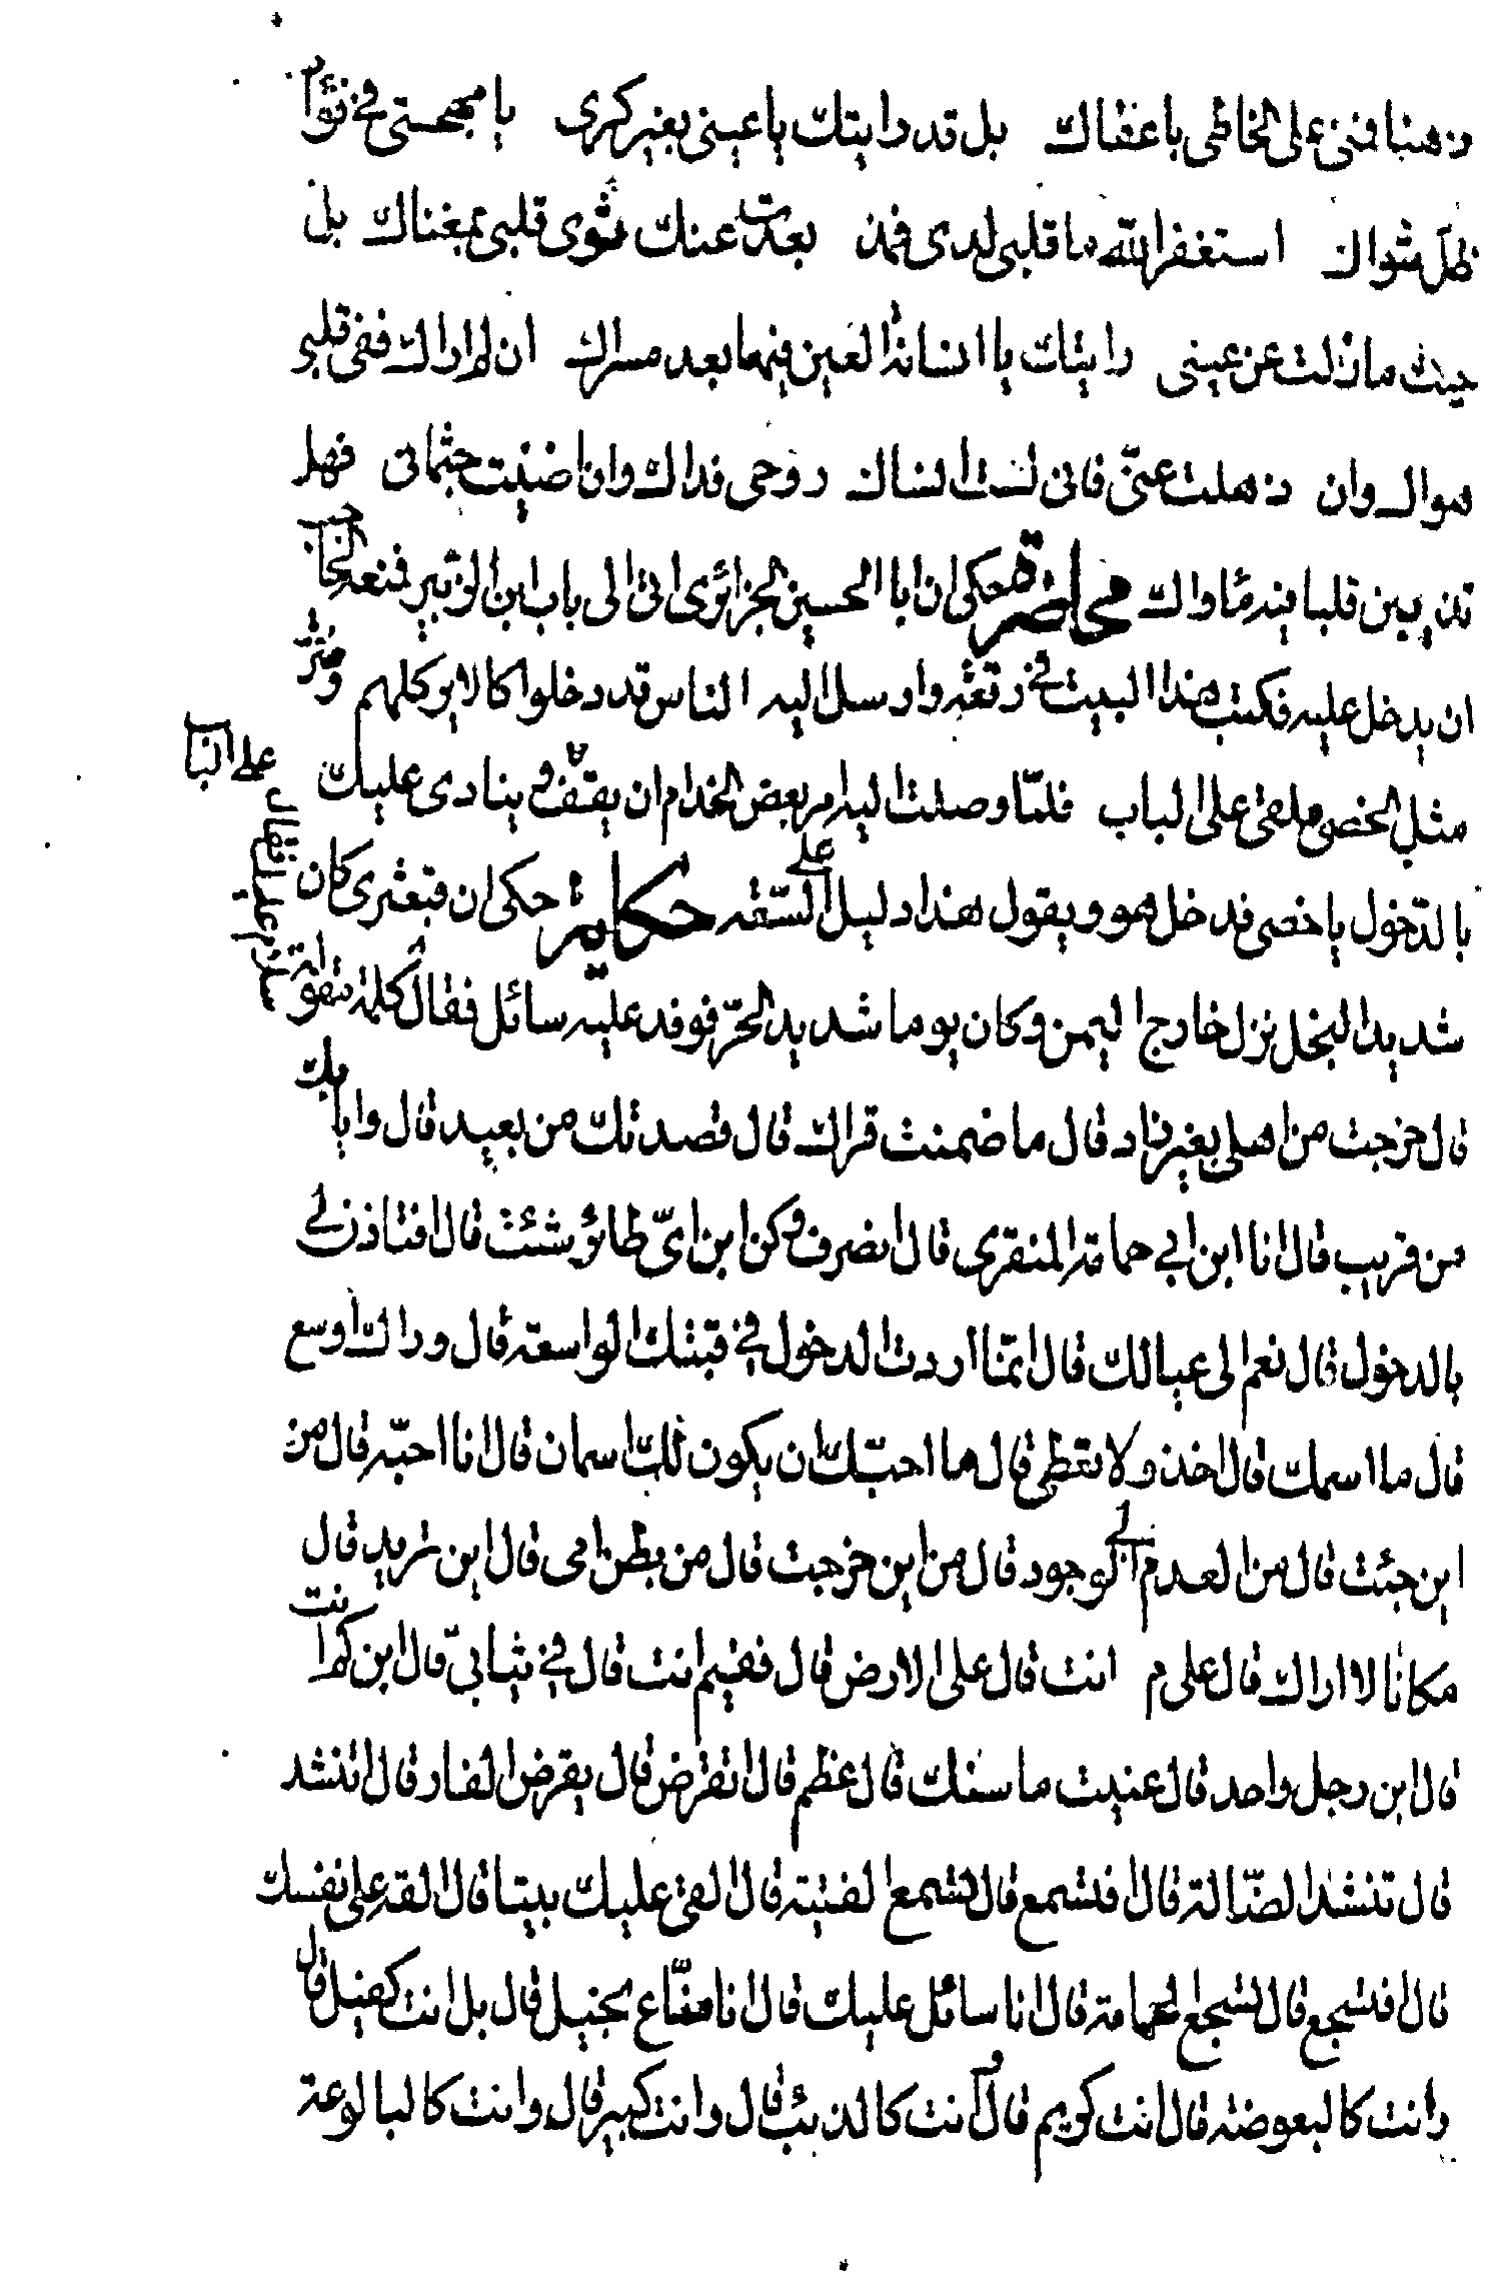 ذهبنا فمنى على الخاطى باعفاك بل قد رايتك يا عينى بغير كرى يا مهجتى فى نوا
ظل مثواك استغفر الله ما قلبى لدى فمذ بعدت عنك ثوى قلبى بمغناك بل
حيث ما زلت عن عينى رايتك يا انسانة العين فيها بعد مسراك ان لم اراك ففى قلبى
هواك وان ذهلت عنى فانى لست انساك روحى فداك وان اضنيت جثمانى فهل
تذيبين قلبا فيه ماواك محاضرة حكى ان ابا الحسين الجزائرى اتى الى باب ابن الزبير فمنعه الحاجب
ان يدخل عليه فكتب هذا البيت فى رقعة وارسل اليه الناس قد دخلوا كالاير كلهم
مثل الخصى ملقى على الباب فلما وصلت اليه امر بعض الخدام ان يقف وينادى عليك
على الباب
بالدخول يا خصى فدخل هو ويقول هذا دليل على السعة حكاية حكى ان قبعثرى كان
شديد البخل نزل خارج اليمن وكان يوما شديد الحر فوفد عليه سائل فقال كلمة مقولة
سلام عليك فقال
قال خرجت من اهلى بغير زاد قال ما ضمنت قراك قال قصدتك من بعيد قال واياك
من قريب قال انا ابن ابى حمامة المنقرى قال انصرف وكن ابن اى طائر شئت قال افتاذن لى
بالدخول قال نعم الى عيالك قال انما اردت الدخول فى قبتك الواسعة قال وراك اوسع
قال ما اسمك قال خذ ولا تعطى قال ما احبك ان يكون لك اسمان قال انا احبه قال من
اين جئت قال من العدم الى الوجود قال من اين خرجت قال من بطن امى قال اين تريد قال
مكانا لا اراك قال على م انت قال على الارض قال ففيم انت قال فى ثيابى قال ابن كم انت
قال ابن رجل واحد قال عنيت ما سنك قال عظم قال اتقرض قال يقرض الفار قال اتنشد
قال تنشد الضالة قال افتسمع قال تسمع القنية قال القى عليك بيتا قال القه على نفسك
قال افتسجع قال تسجع الحمامة قال انا سائل عليك قال انا مناع بخيل قال بل انت كفيل قال
وانت كالبعوضة قال انت كريم قال انت كالذئب قال وانت كبير قال وانت كالبالوعة